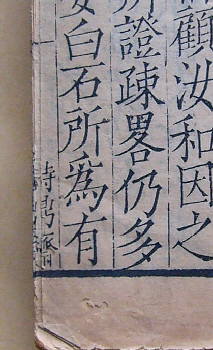 顧汝和因之
證疎畧仍多
白石所為有